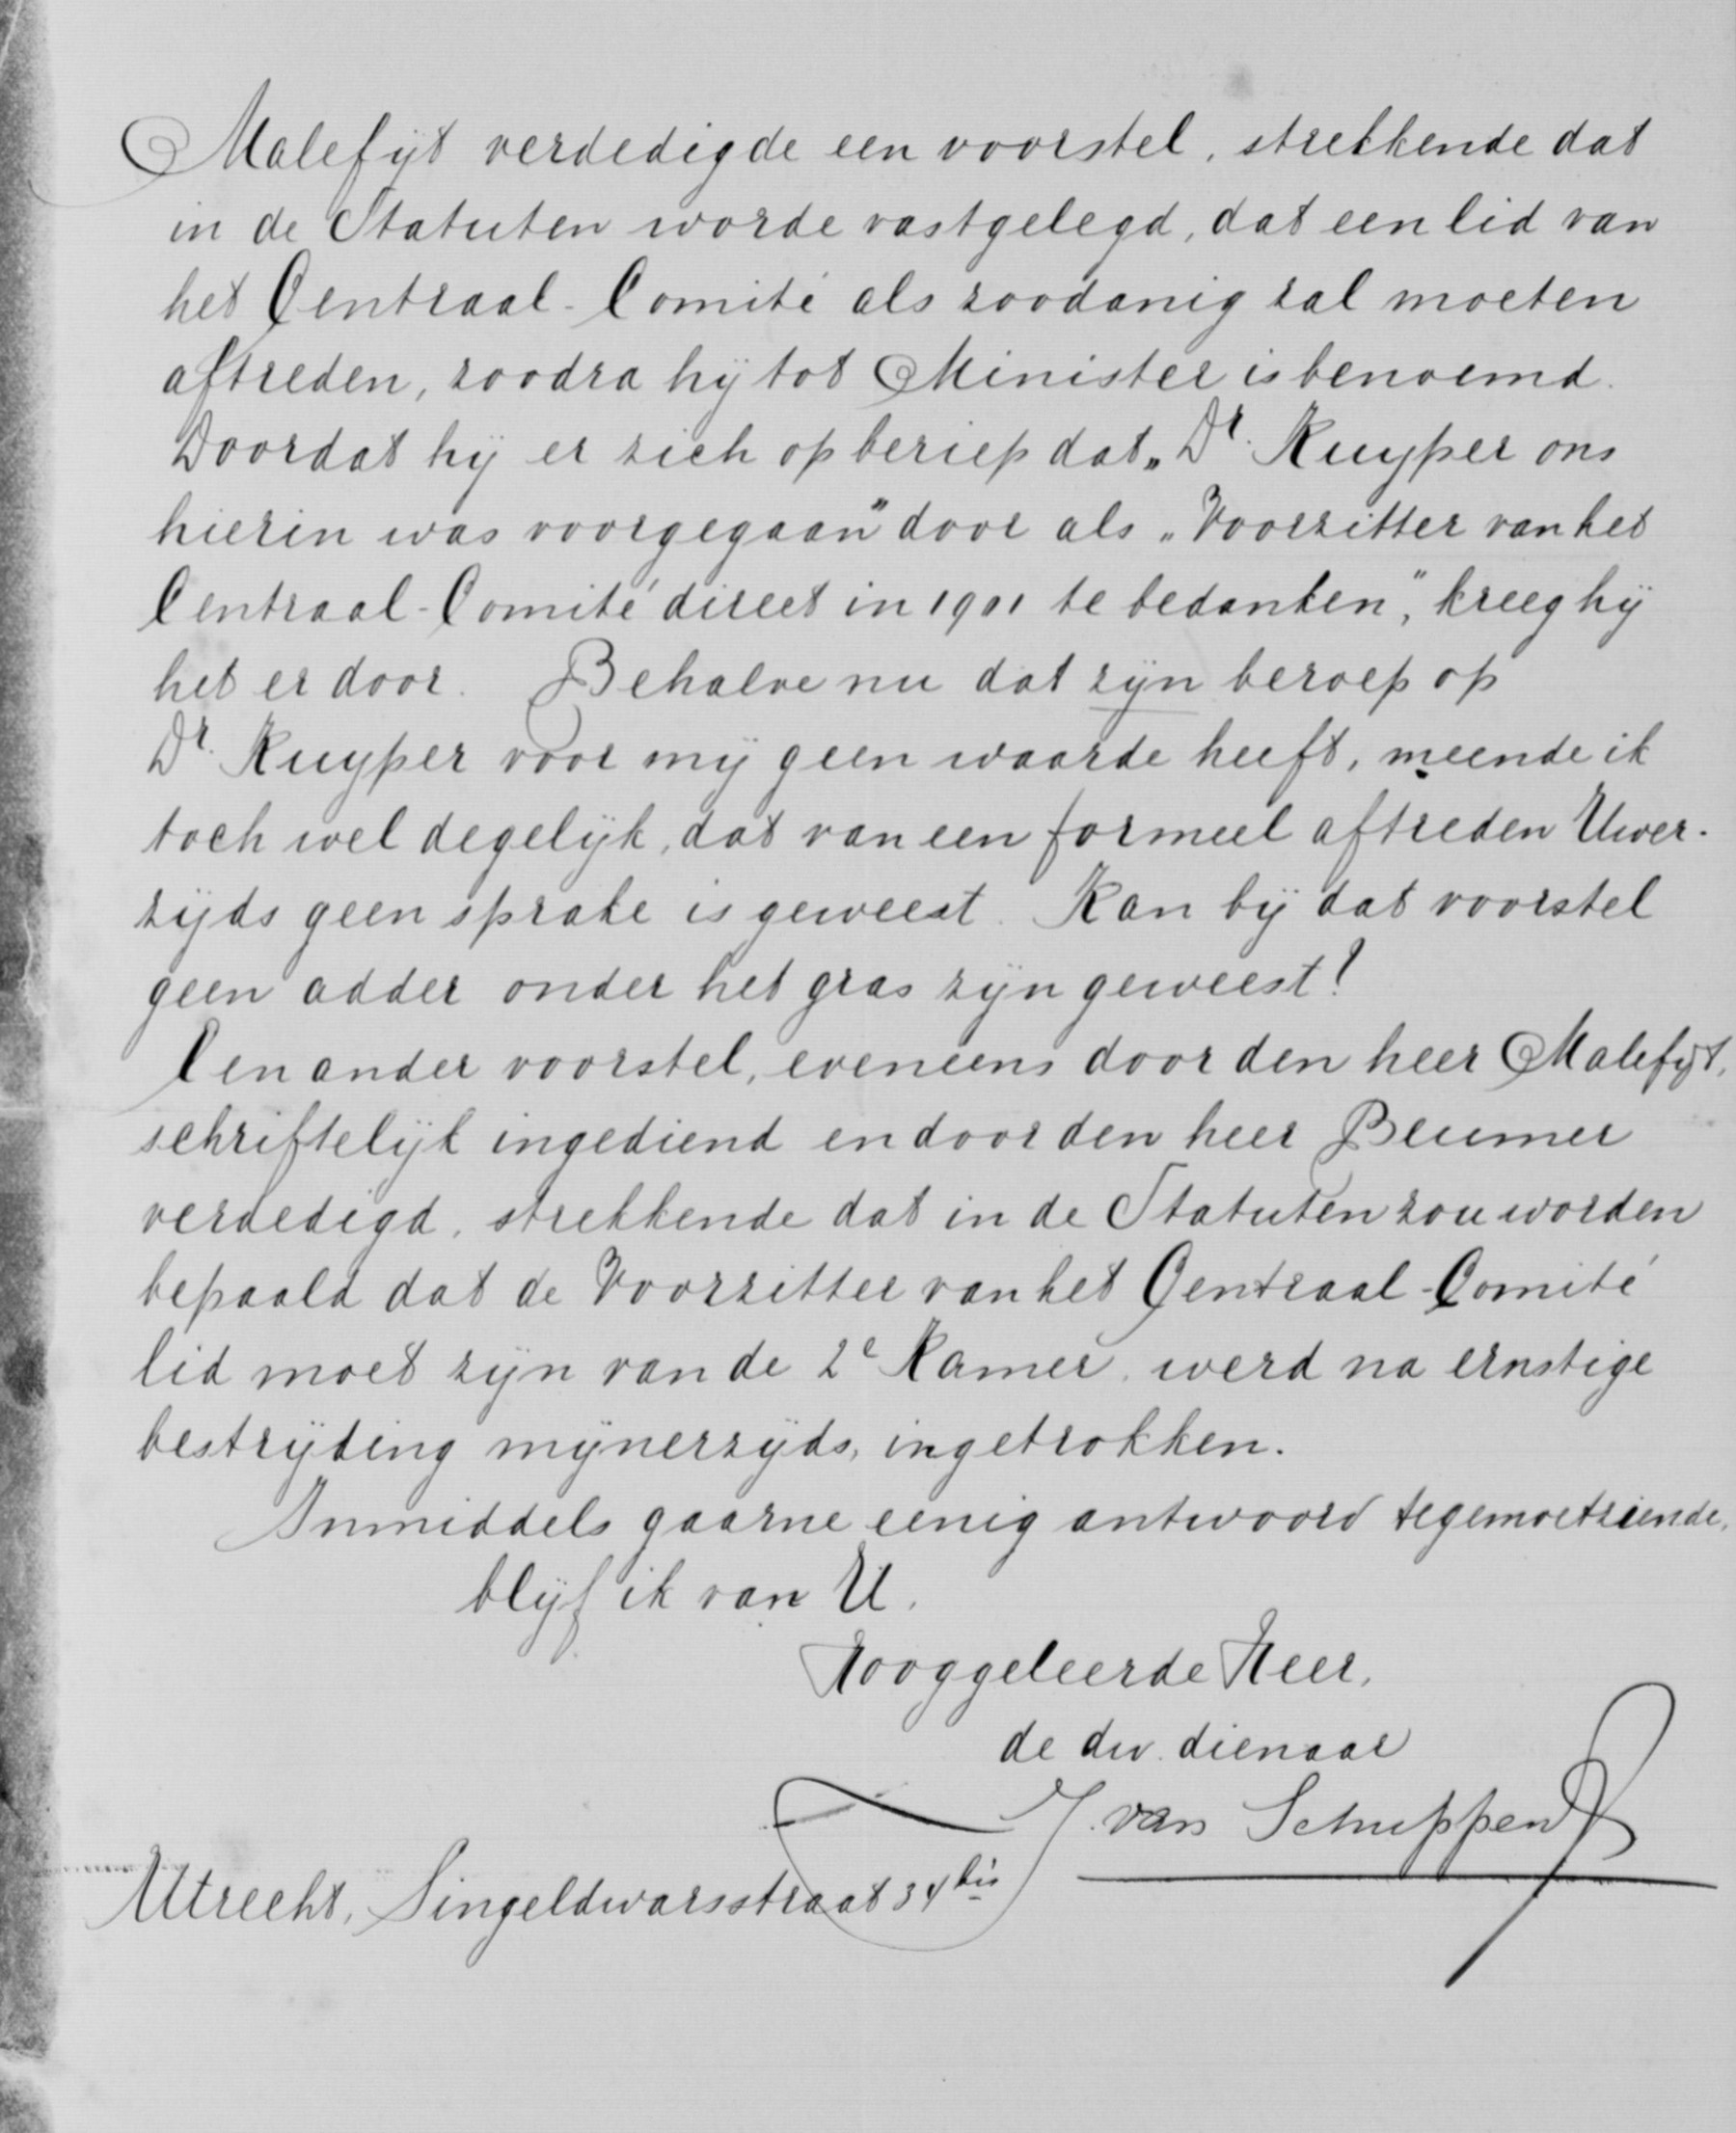 Malefijt verdedigde een voorstel, strekkende dat
in de Statuten worde vastgelegd, dat een lid van
het Centraal-Comité als zoodanig zal moeten
aftreden, zoodra hij tot Minister is benoemd.
Doordat hij er zich op beriep dat „Dr. Kuyper ons
hierin was voorgegaan" door als „Voorzitter van het
Centraal-Comité direct in 1901 te bedanken", kreeg hij
het er door. Behalve nu dat zijn beroep op
Dr. Kuyper voor mij geen waarde heeft, meende ik
toch wel degelijk, dat van een formeel aftreden Uwer-
zijds geen sprake is geweest. Kan bij dat voorstel
geen adder onder het gras zijn geweest?
Een ander voorstel, eveneens door den heer Malefijt,
schriftelijk ingediend en door den heer Beumer
verdedigd, strekkende dat in de Statuten zou worden
bepaald dat de Voorzitter van het Centraal-Comité
lid moet zijn van de 2e Kamer, werd na ernstige
bestrijding mijnerzijds, ingetrokken.
Inmiddels gaarne eenig antwoord tegemoetziende,
blijf ik van U,
Hooggeleerde Heer,
de dw. dienaar
J. van Schuppen
Utrecht, Singeldwarsstraat 34 bis